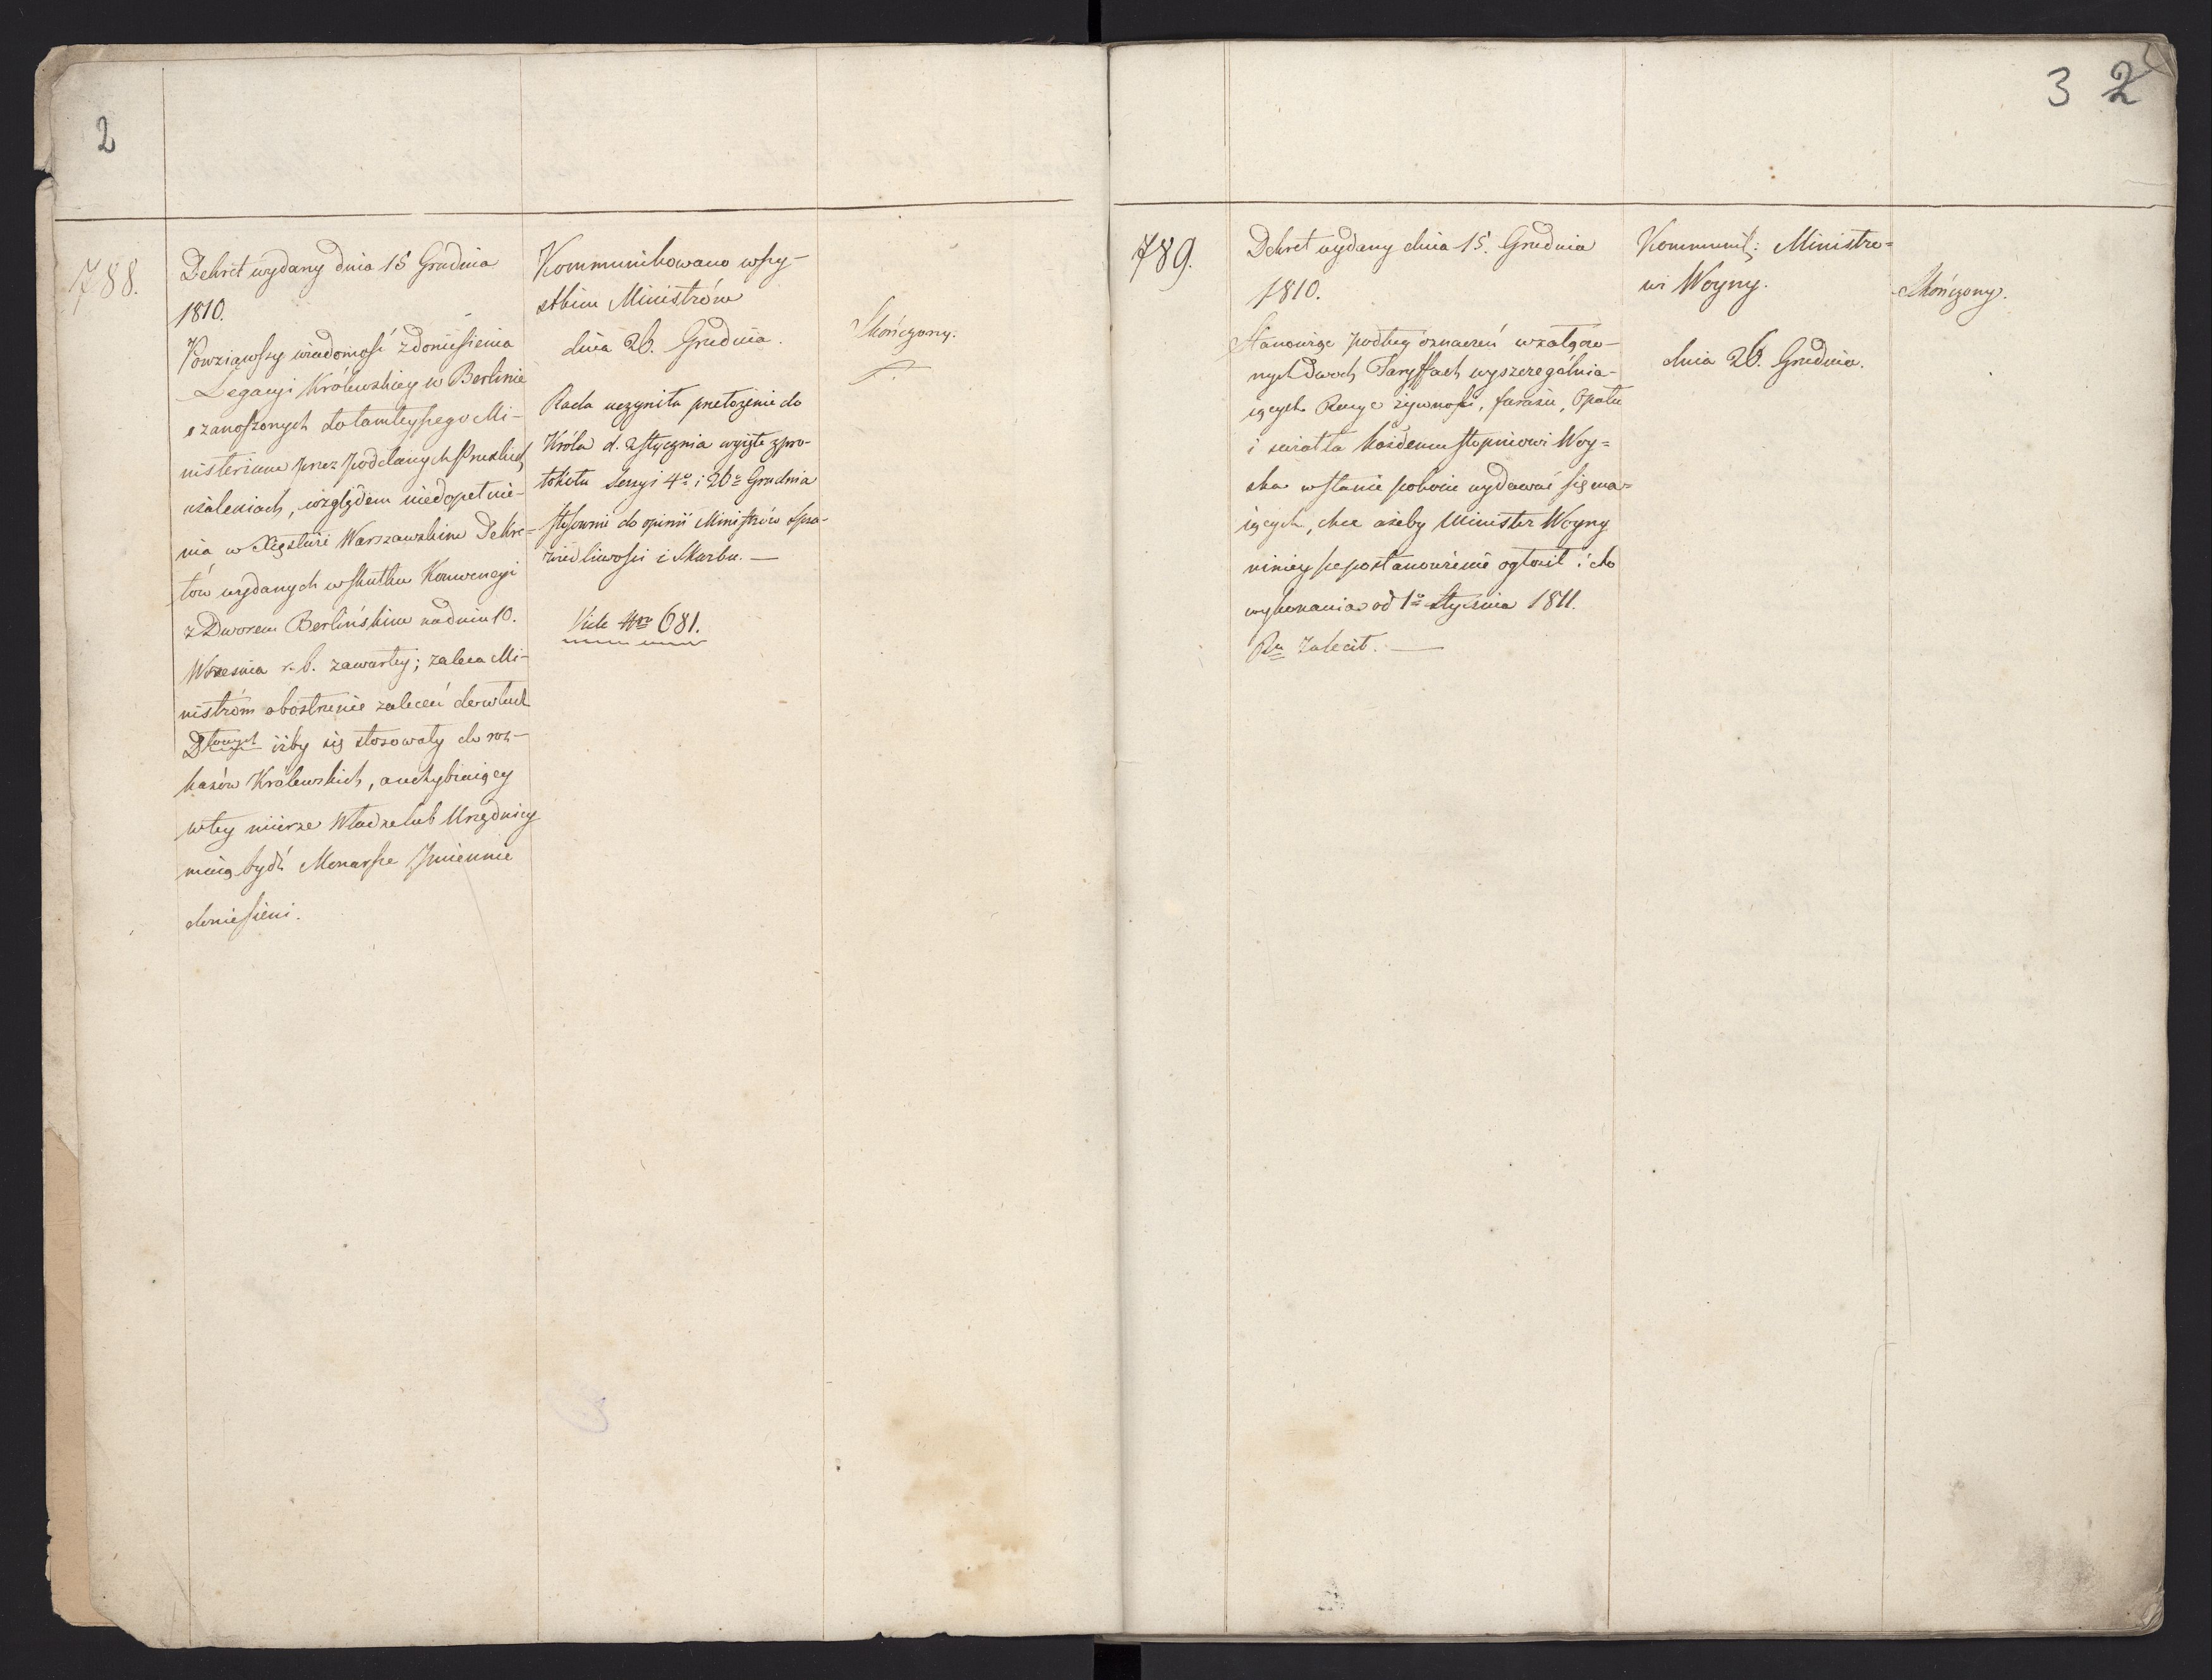 2
788.
Dekret wydany dnia 15 Grudnia
1810.
Powziąwszy wiadomość z doniesienia
Legacyi Królewskiey w Berlinie
o zanoszonych do tamteyszego Mi-
nisterium przez poddanych Pruskich
użaleniach, względem niedopełnie-
nia w Xięstwie Warszawskim Dekre-
tów wydanych w skutku Konwencyi
z Dworem Berlińskim na dniu 10.
Września r. b. zawartey; zaleca Mi-
nistrom obostrzenie zaleceń do władz
iżby się stosowały do roz-
kazów Królewskich, a uchybiaiący
w tey mierze Władze lub Urzędnicy
maią bydź Monarsze Imiennie
doniesieni.
Kommunikowano wszy-
stkim Ministróm
dnia 26. Grudnia.
Rada uczyniła przełożenie do
Króla d. 2 Stycznia wyięte z pro-
tokółu Sessyi 4º i 26º Grudnia
stosownie do opinii Ministrów Spra-
wiedliwości i Skarbu. —
Vide Nro 681.
Skończony.
3 2
789.
Dekret wydany dnia 15. Grudnia
1810.
Stanowiąc podług oznaczeń w załączo-
nych dwóch Taryffach wyszczególnia-
iących Racye żywności, furażu, Opału
i światła każdemu stopniowi Woy=
ska w stanie pokoiu wydawać się ma=
iących, chce ażeby Minister Woyny
ninieysze postanowienie ogłosił i do
wykonania od 1º Stycznia 1811.
Ru zalecił. —
Kommunik: Ministro=
wi Woyny.
dnia 26. Grudnia.
Skończony.